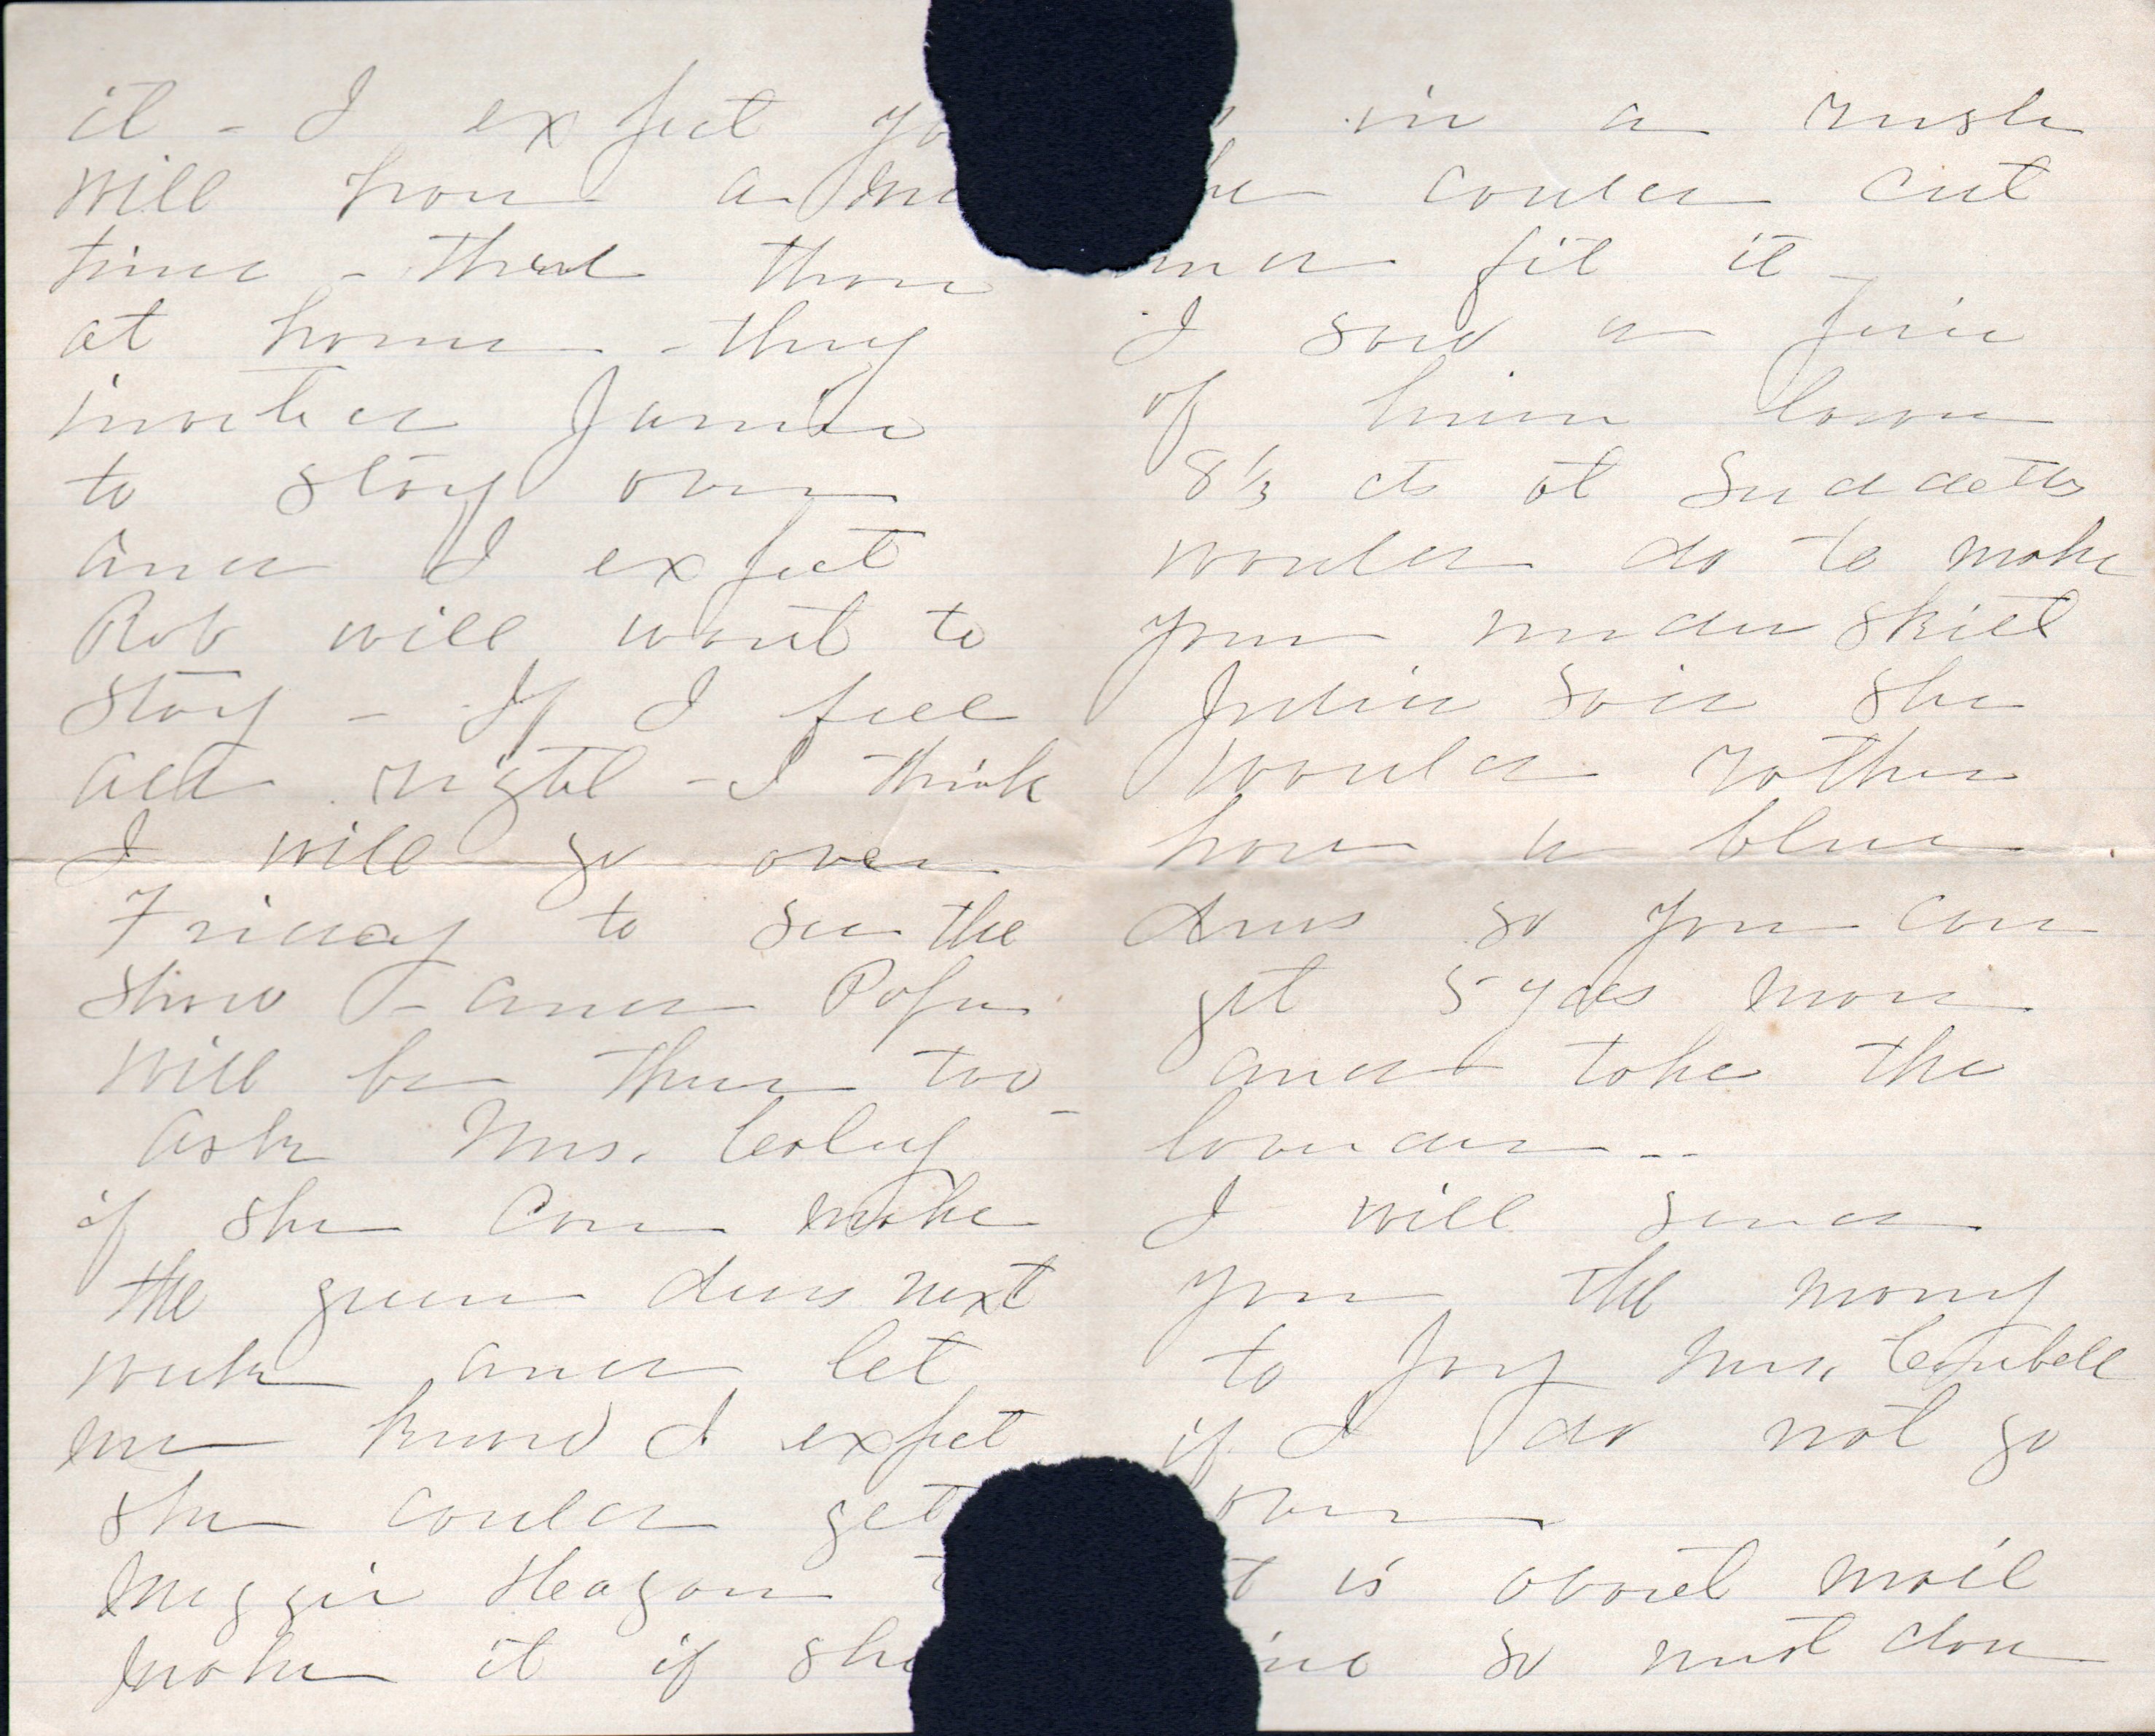 it - I expect yo
will have a
time - than those
at home - they
invited Jamie
to stay over
and I expect
Rob will want to
stay - If I feel
all right - I think
I will go over
Friday to see the
show - and Papa
will be there too -
ask Mrs. Coley
if she can make
the green dress next
week and let
me know I expect
she could get
Maggie Heagan t
make it if she
in a rush
he could cut
and fit it -
I saw a piece
of linen lawn
8 1/3 cts at Suddeths
would do to make
your underskirt
said she
would rather
have a blue
dress so you can
get 5 yds more
and take the
lavender --
I will send
you the money
to pay Mrs. Campbell
if I do not go
over
t is about mail
ime so must close